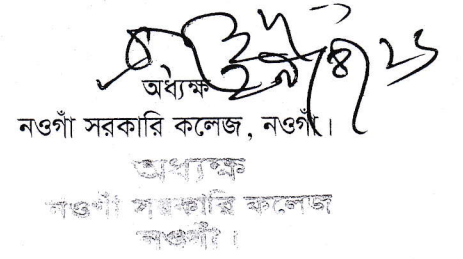 অধ্যক্ষ
নওগাঁ সরকারি কলেজ, নওগাঁ।
অধ্যক্ষ
নওগাঁ সরকারি কলেজ
নওগাঁ।